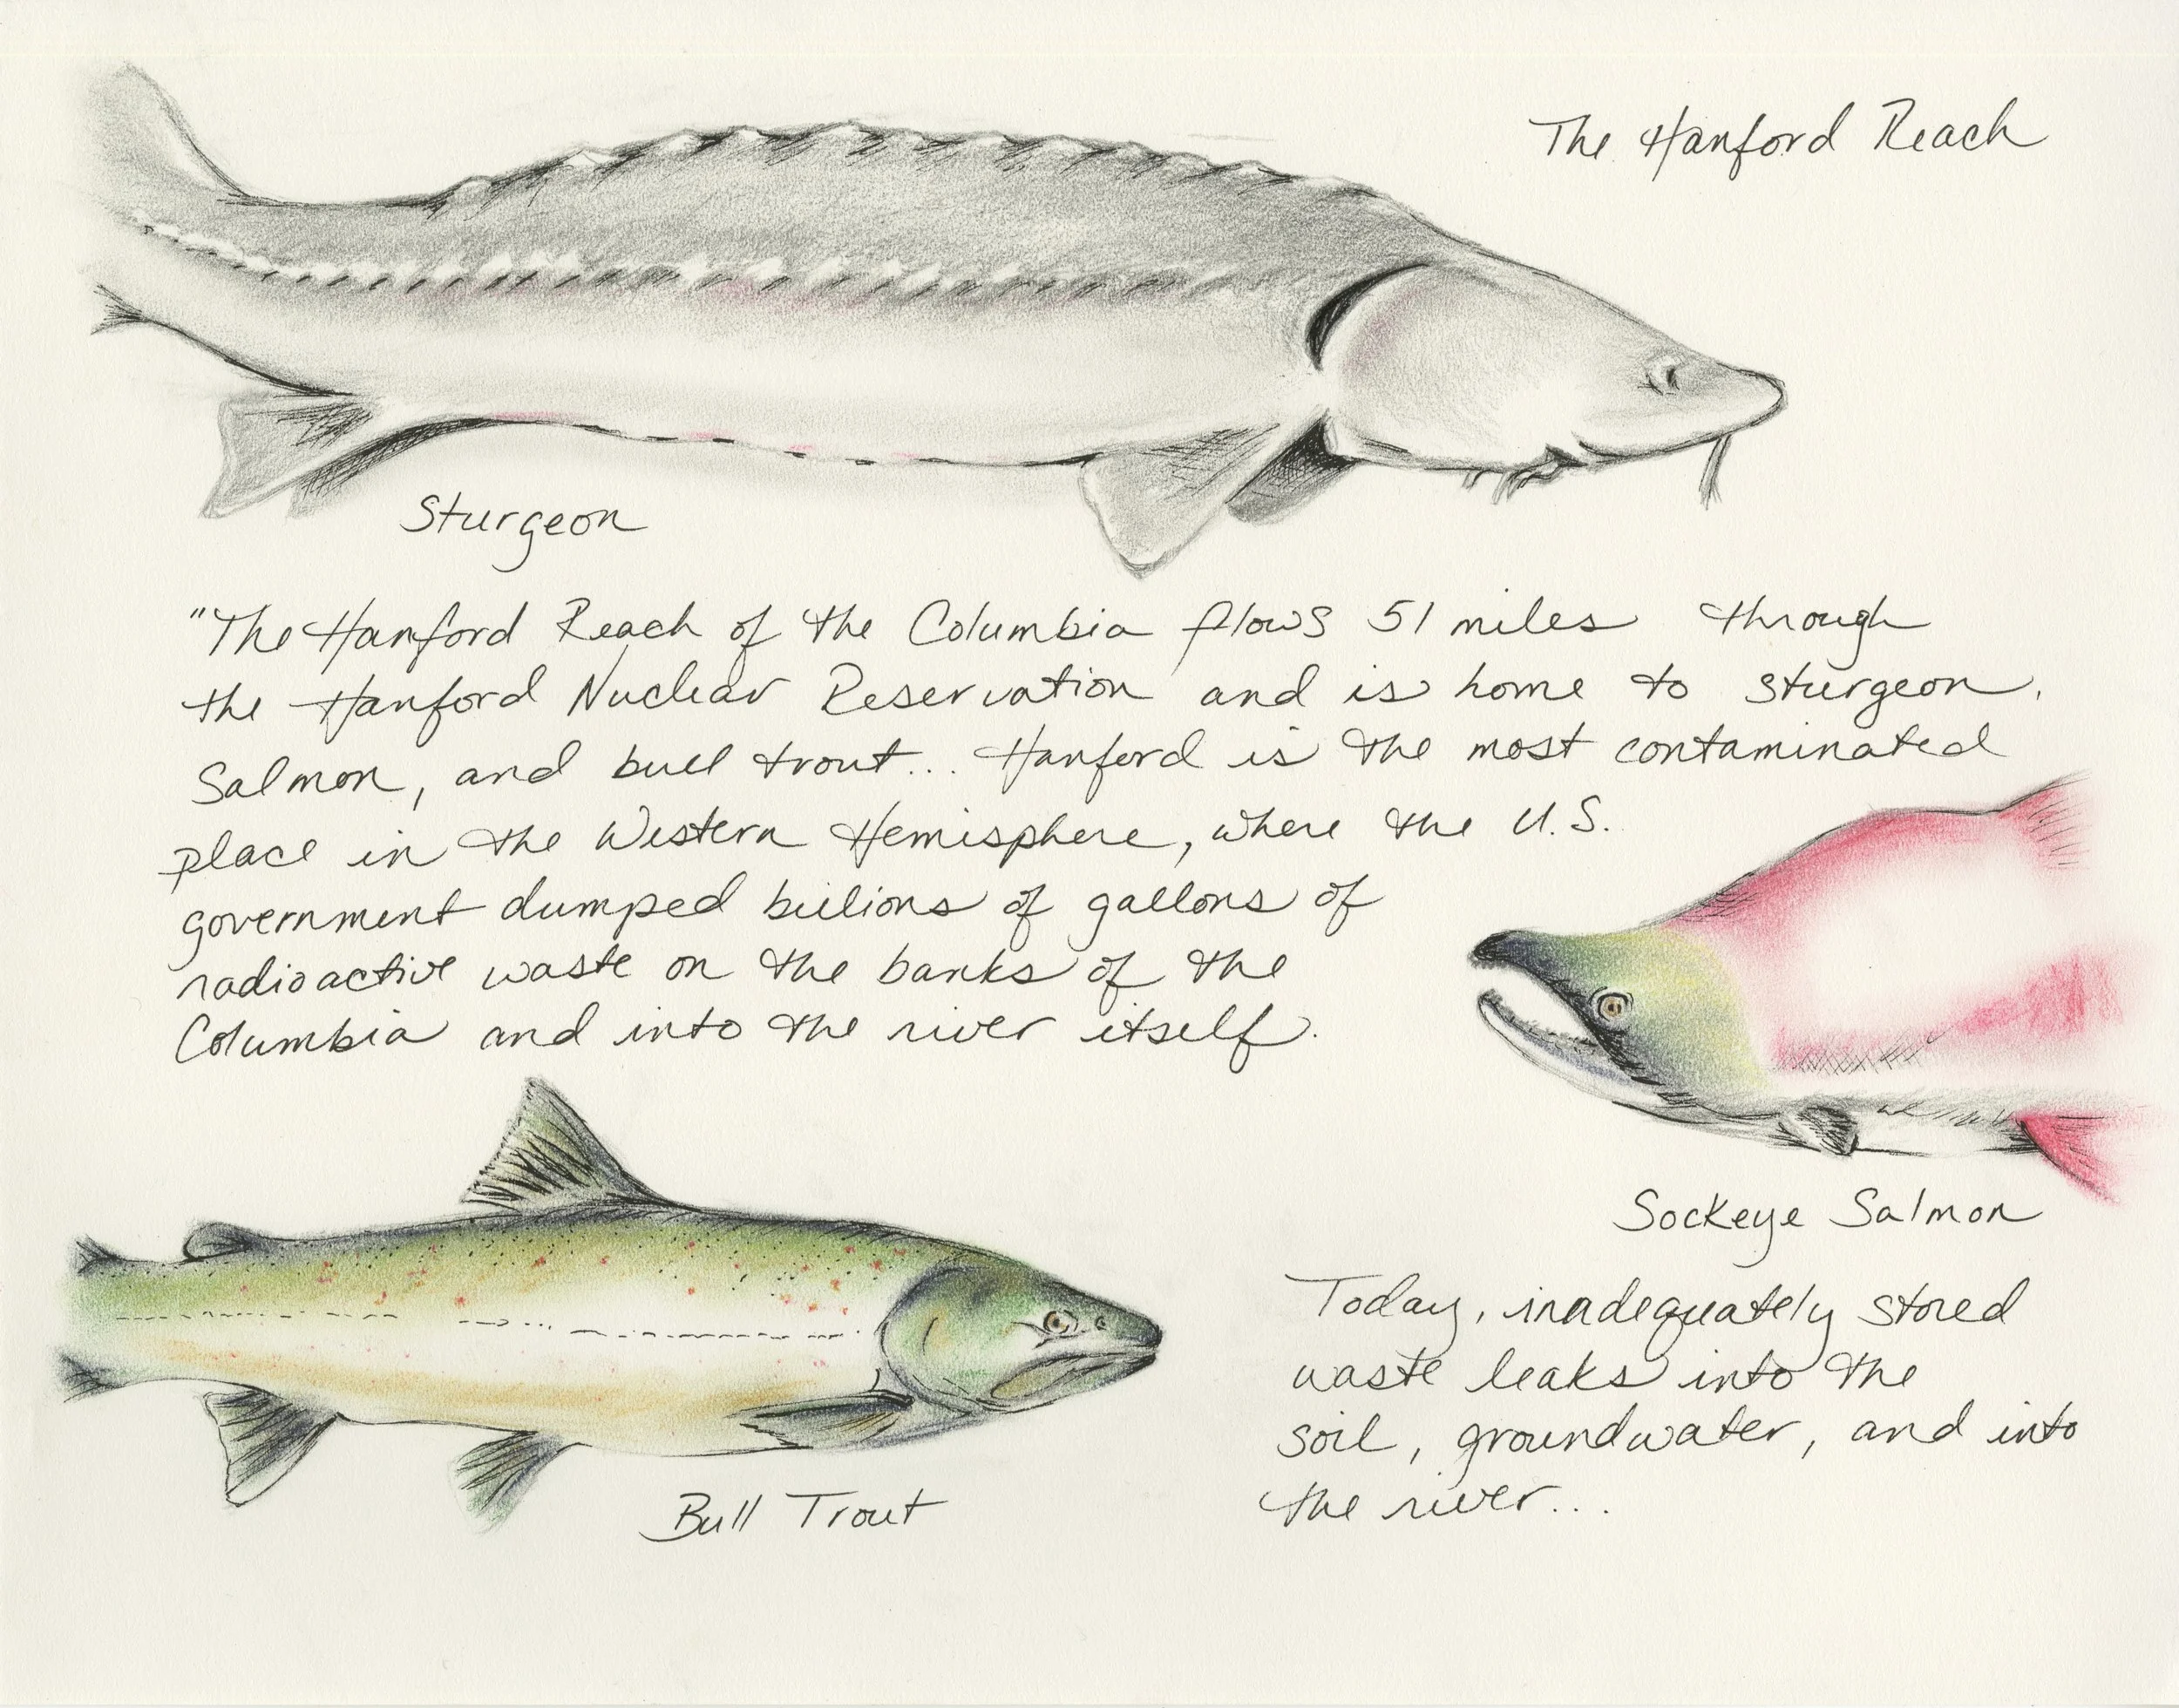 The Hanford Reach
Sturgeon
"The Hanford Reach of the Columbia flows 51 miles through
the Hanford Nuclear Reservation and is home to sturgeon,
Salmon, and bull trout... Hanford is the most contaminated
place in the Western Hemisphere, where the U.S.
government dumped billions of gallons of
radioactive waste on the banks of the
Columbia and into the river itself.
Sockeye Salmon
Today, inadequately stored
waste leaks into the
soil, groundwater, and into
the river...
Bull Trout